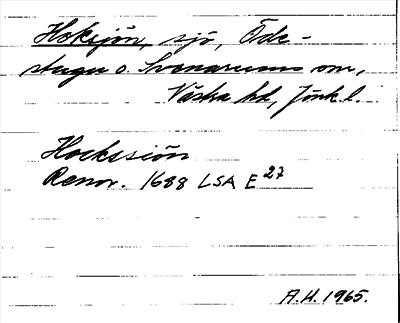 Hoksjön, sjö, Öde-
stugu o. Svenarums snr,
Västra hd, Jönk l.
Hockssiön
Renov. 1688 LSA E 27
A.H. 1965.